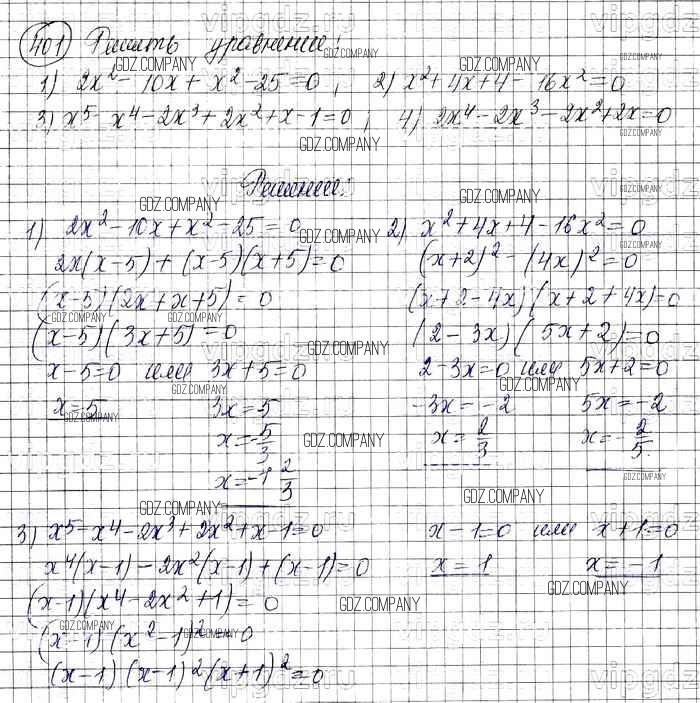 401 Решить уравнение:
1) 2x² - 10x + x² - 25 = 0; 2) x² + 4x + 4 - 16x² = 0
3) x⁵ - x⁴ - 2x³ + 2x² + x - 1 = 0; 4) 2x⁴ - 2x³ - 2x² + 2x = 0
Решение:
1) 2x² - 10x + x² - 25 = 0
2x(x-5) + (x-5)(x+5) = 0
(x-5)(2x+x+5) = 0
(x-5)(3x+5) = 0
x-5=0 или 3x+5=0
x=5 3x=-5
x=-5/3
x=-1 2/3
2) x² + 4x + 4 - 16x² = 0
(x+2)² - (4x)² = 0
(x+2-4x)(x+2+4x)=0
(2-3x)(5x+2)=0
2-3x=0 или 5x+2=0
-3x=-2 5x=-2
x=2/3 x=-2/5.
3) x⁵ - x⁴ - 2x³ + 2x² + x - 1 = 0
x⁴(x-1) - 2x²(x-1) + (x-1) = 0
(x-1)(x⁴ - 2x² + 1) = 0
(x-1)(x²-1)² = 0
(x-1)(x-1)²(x+1)² = 0
x-1=0 или x+1=0
x=1 x=-1
GDZ.COMPANY
vipgdz.ru